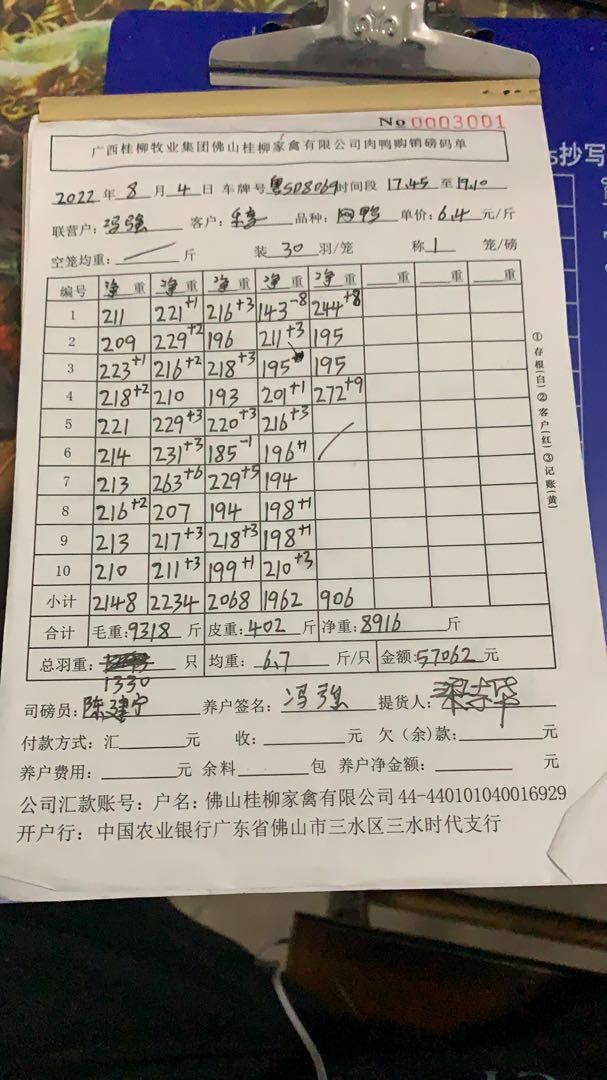 No 0003001
广西桂柳牧业集团佛山桂柳家禽有限公司肉鸭购销磅码单
2022 年 8 月 4 日 车牌号 粤SD8069 时间段 17.45 至 19.10
联营户: 冯强 客户: 乐享 品种: 网鸭 单价: 6.4 元/斤
空笼均重: / 斤 装 30 羽/笼 称 1 笼/磅
编号 净重 净重 净重 净重 净重 重 重 重
1 211 221+1 216+3 143-8 244+8
2 209 229+2 196 211+3 195
3 223+1 216+2 218+3 195 195
4 218+2 210 193 201+1 272+9
5 221 229+3 220+3 216+3
6 214 231+3 185-1 196+1 /
7 213 263+6 229+5 194
8 216+2 207 194 198+1
9 213 217+3 218+3 198+1
10 210 211+3 199+1 210+3
小计 2148 2234 2068 1962 906
合计 毛重: 9318 斤 皮重: 402 斤 净重: 8916 斤
总羽重: 1330 只 均重: 6.7 斤/只 金额: 57062 元
司磅员: 陈建宁 养户签名: 冯强 提货人:
付款方式: 汇 元 收: 元 欠(余)款: 元
养户费用: 元 余料 包 养户净金额: 元
公司汇款账号: 户名: 佛山桂柳家禽有限公司 44-440101040016929
开户行: 中国农业银行广东省佛山市三水区三水时代支行
①存根(白)②客户(红)③记账(黄)
s抄写